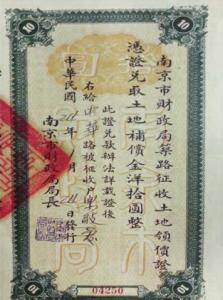 10
10
南京市財政局築路征收土地領償證
憑證兌取土地補償金洋拾圓整
此證兌款辦法詳載證後
右給
路被征收戶
中華民國
年
月
日發行
南京市財政局局長
10
04250
10